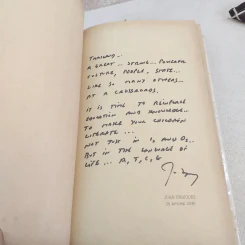 THAILAND...
A GREAT... STRONG... POWERFUL
CULTURE, PEOPLE, STATE...
LIKE SO MANY OTHERS...
AT A CROSSROADS.
IT IS TIME TO REINFORCE
EDUCATION AND KNOWLEDGE...
TO MAKE YOUR CHILDREN
LITERATE...
NOT JUST IN 1, AND 0s,
BUT IN THE LANGUAGE OF
LIFE... A, T, C, G